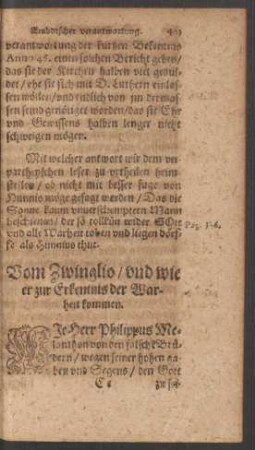 verantwortung der kurtzen Bekentnis
Anno 45. einen solchen Bericht geben/
das sie der Kirchen halben viel gedul-
det / ehe sie sich mit D. Luthern einlas-
sen wöllen/ vnd endlich von jm dermas-
sen seind genötiget worden/ das sie Ehr
vnd Gewissens halben lenger nicht
schweigen mögen.
Mit welcher antwort wir dem vn
partheyschen leser zu vrtheilen heim
stellen/ ob nicht mit besser fuge von
Hunnio möge gesagt werden / Das die
Sonne kaum vnuerschempter Mann
bescheinet/ der so tollkün wider GOtt
vnd alle Warheit toben vnd liegen dörf-
fe als Hunnius thut.
Vom Zwinglio / vnd wie
er zur Erkentnis der War-
heit kommen.
WIe Herr Philippus Me-
lanthon von den falschē Brü-
dern / wegen seiner hohen ga-
ben vnd Segens / den Gott
zu